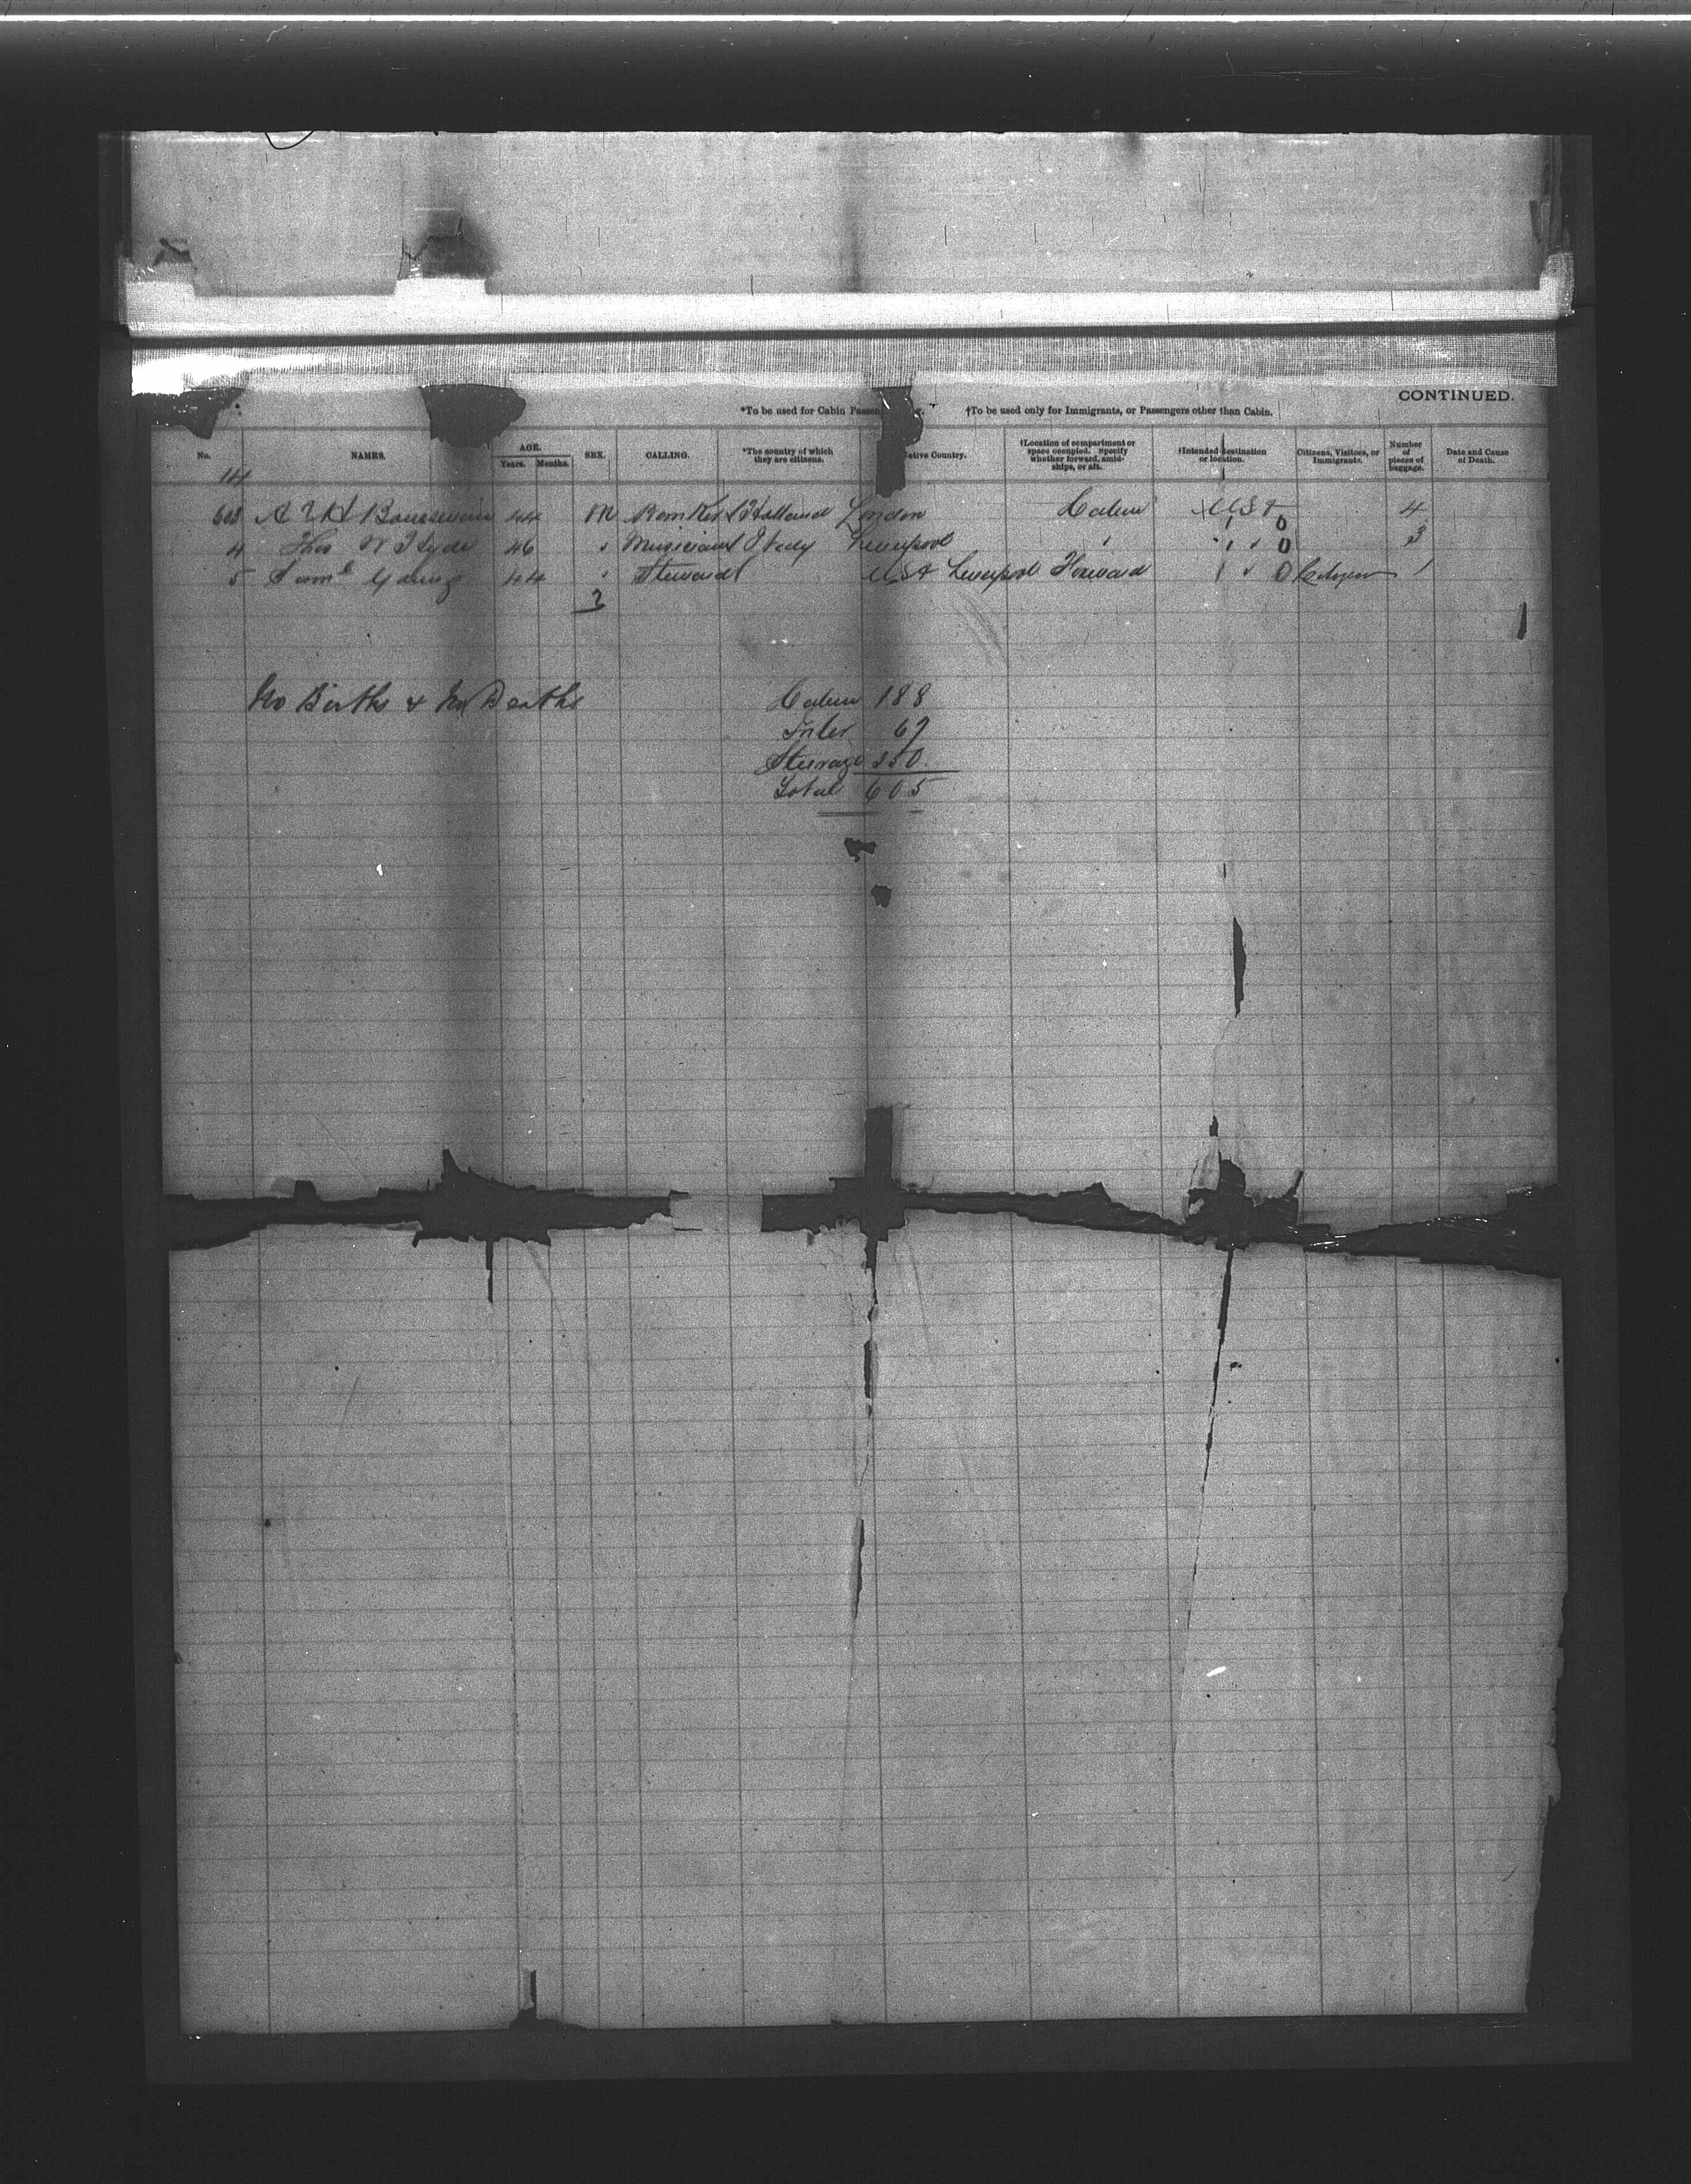 CONTINUED.
*To be used for Cabin †To be used only for Immigrants, or Passengers other than Cabin.
No. NAMES. AGE. Years. Months. SEX. CALLING. *The country of which they are citizens. Native Country. †Location of compartment or space occupied. Specify whether forward, amidships, or aft. †Intended destination or location. Citizens, Visitors, or Immigrants. Number of pieces of baggage. Date and Cause of Death.
114
603 A 44 M Banker Holland London Cabin USA 4
4 Thos W Hyde 46 Musician Italy Liverpool 0 3
5 Saml Young 44 Steward USA Liverpool Forward 0 Citizen 1
3
No Births & No Deaths
Cabin 188
Inter 67
Steerage 350.
Total 605